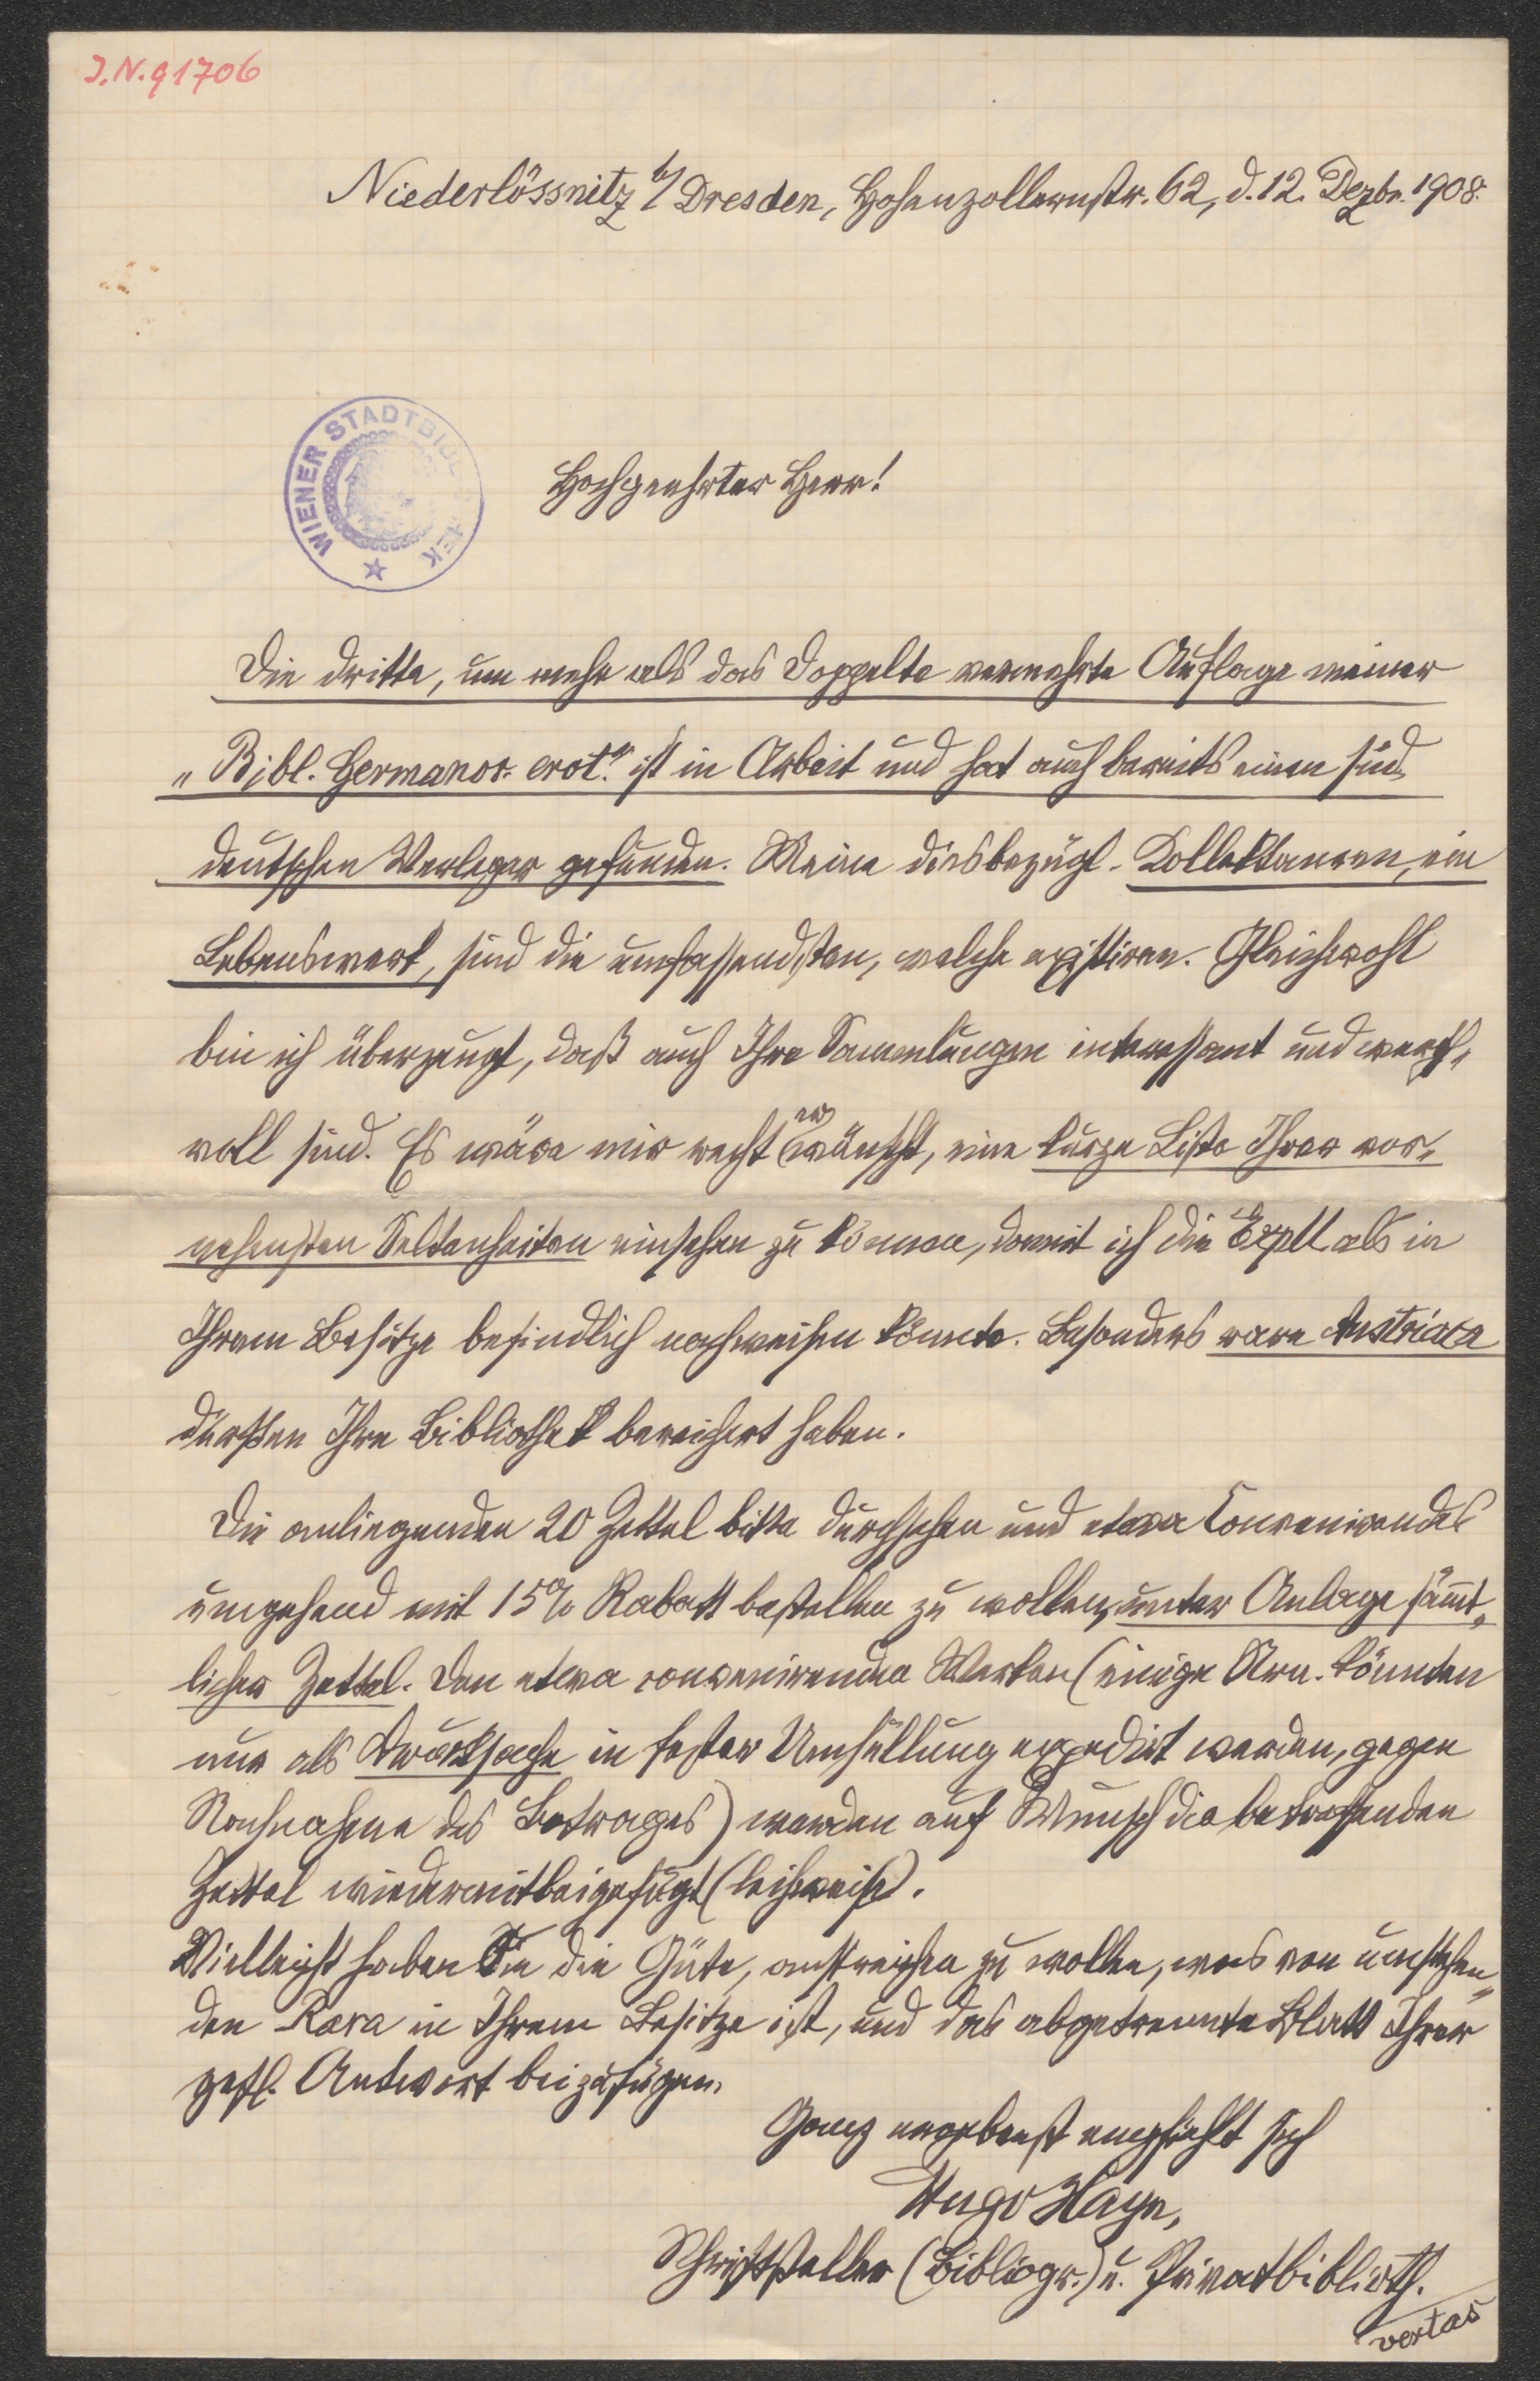 J.N. 91706
Niederlössnitz b/ Dresden, Hohenzollernstr. 62, d. 12. Dezbr. 1908.
WIENER STADTBIBLIOTHEK
Hochgeehrter Herr!
Die dritte, um mehr als das Doppelte vermehrte Auflage meiner
„Bibl. Germanor. erot.“ ist in Arbeit und hat auch bereits einen süd-
deutschen Verleger gefunden. Meine diesbezügl. Kollektaneen, ein
Lebenswerk, sind die umfassendsten, welche existiren. Gleichwohl
bin ich überzeugt, daß auch Ihre Sammlungen interessant und werth-
voll sind. Es wäre mir recht erwünscht, eine kurze Liste Ihrer vor-
nehmsten Seltenheiten einsehen zu können, damit ich die Expll. als in
Ihrem Besitze befindlich nachweisen könnte. Besonders rare Austriaca
dürften Ihre Bibliothek bereichert haben.
Die anliegenden 20 Zettel bitte durchsehen und etwa Convenirendes
umgehend mit 15% Rabatt bestellen zu wollen, unter Anlage sämt-
licher Zettel. Den etwa convenirenden Werken (einige Nrn. könnten
nur als Drucksache in fester Umhüllung expedirt werden, gegen
Nachnahme des Betrages) werden auf Wunsch die betreffenden
Zettel wieder mit beigefügt (leihweise).
Vielleicht haben Sie die Güte, anstreichen zu wollen, was von umstehen-
den Rara in Ihrem Besitze ist, und das abgetrennte Blatt Ihrer
gefl. Antwort beizufügen.
Ganz ergebenst empfiehlt sich
Hugo Hayn,
Schriftsteller (Bibliogr.) u. Privatbiblioth.
vertas